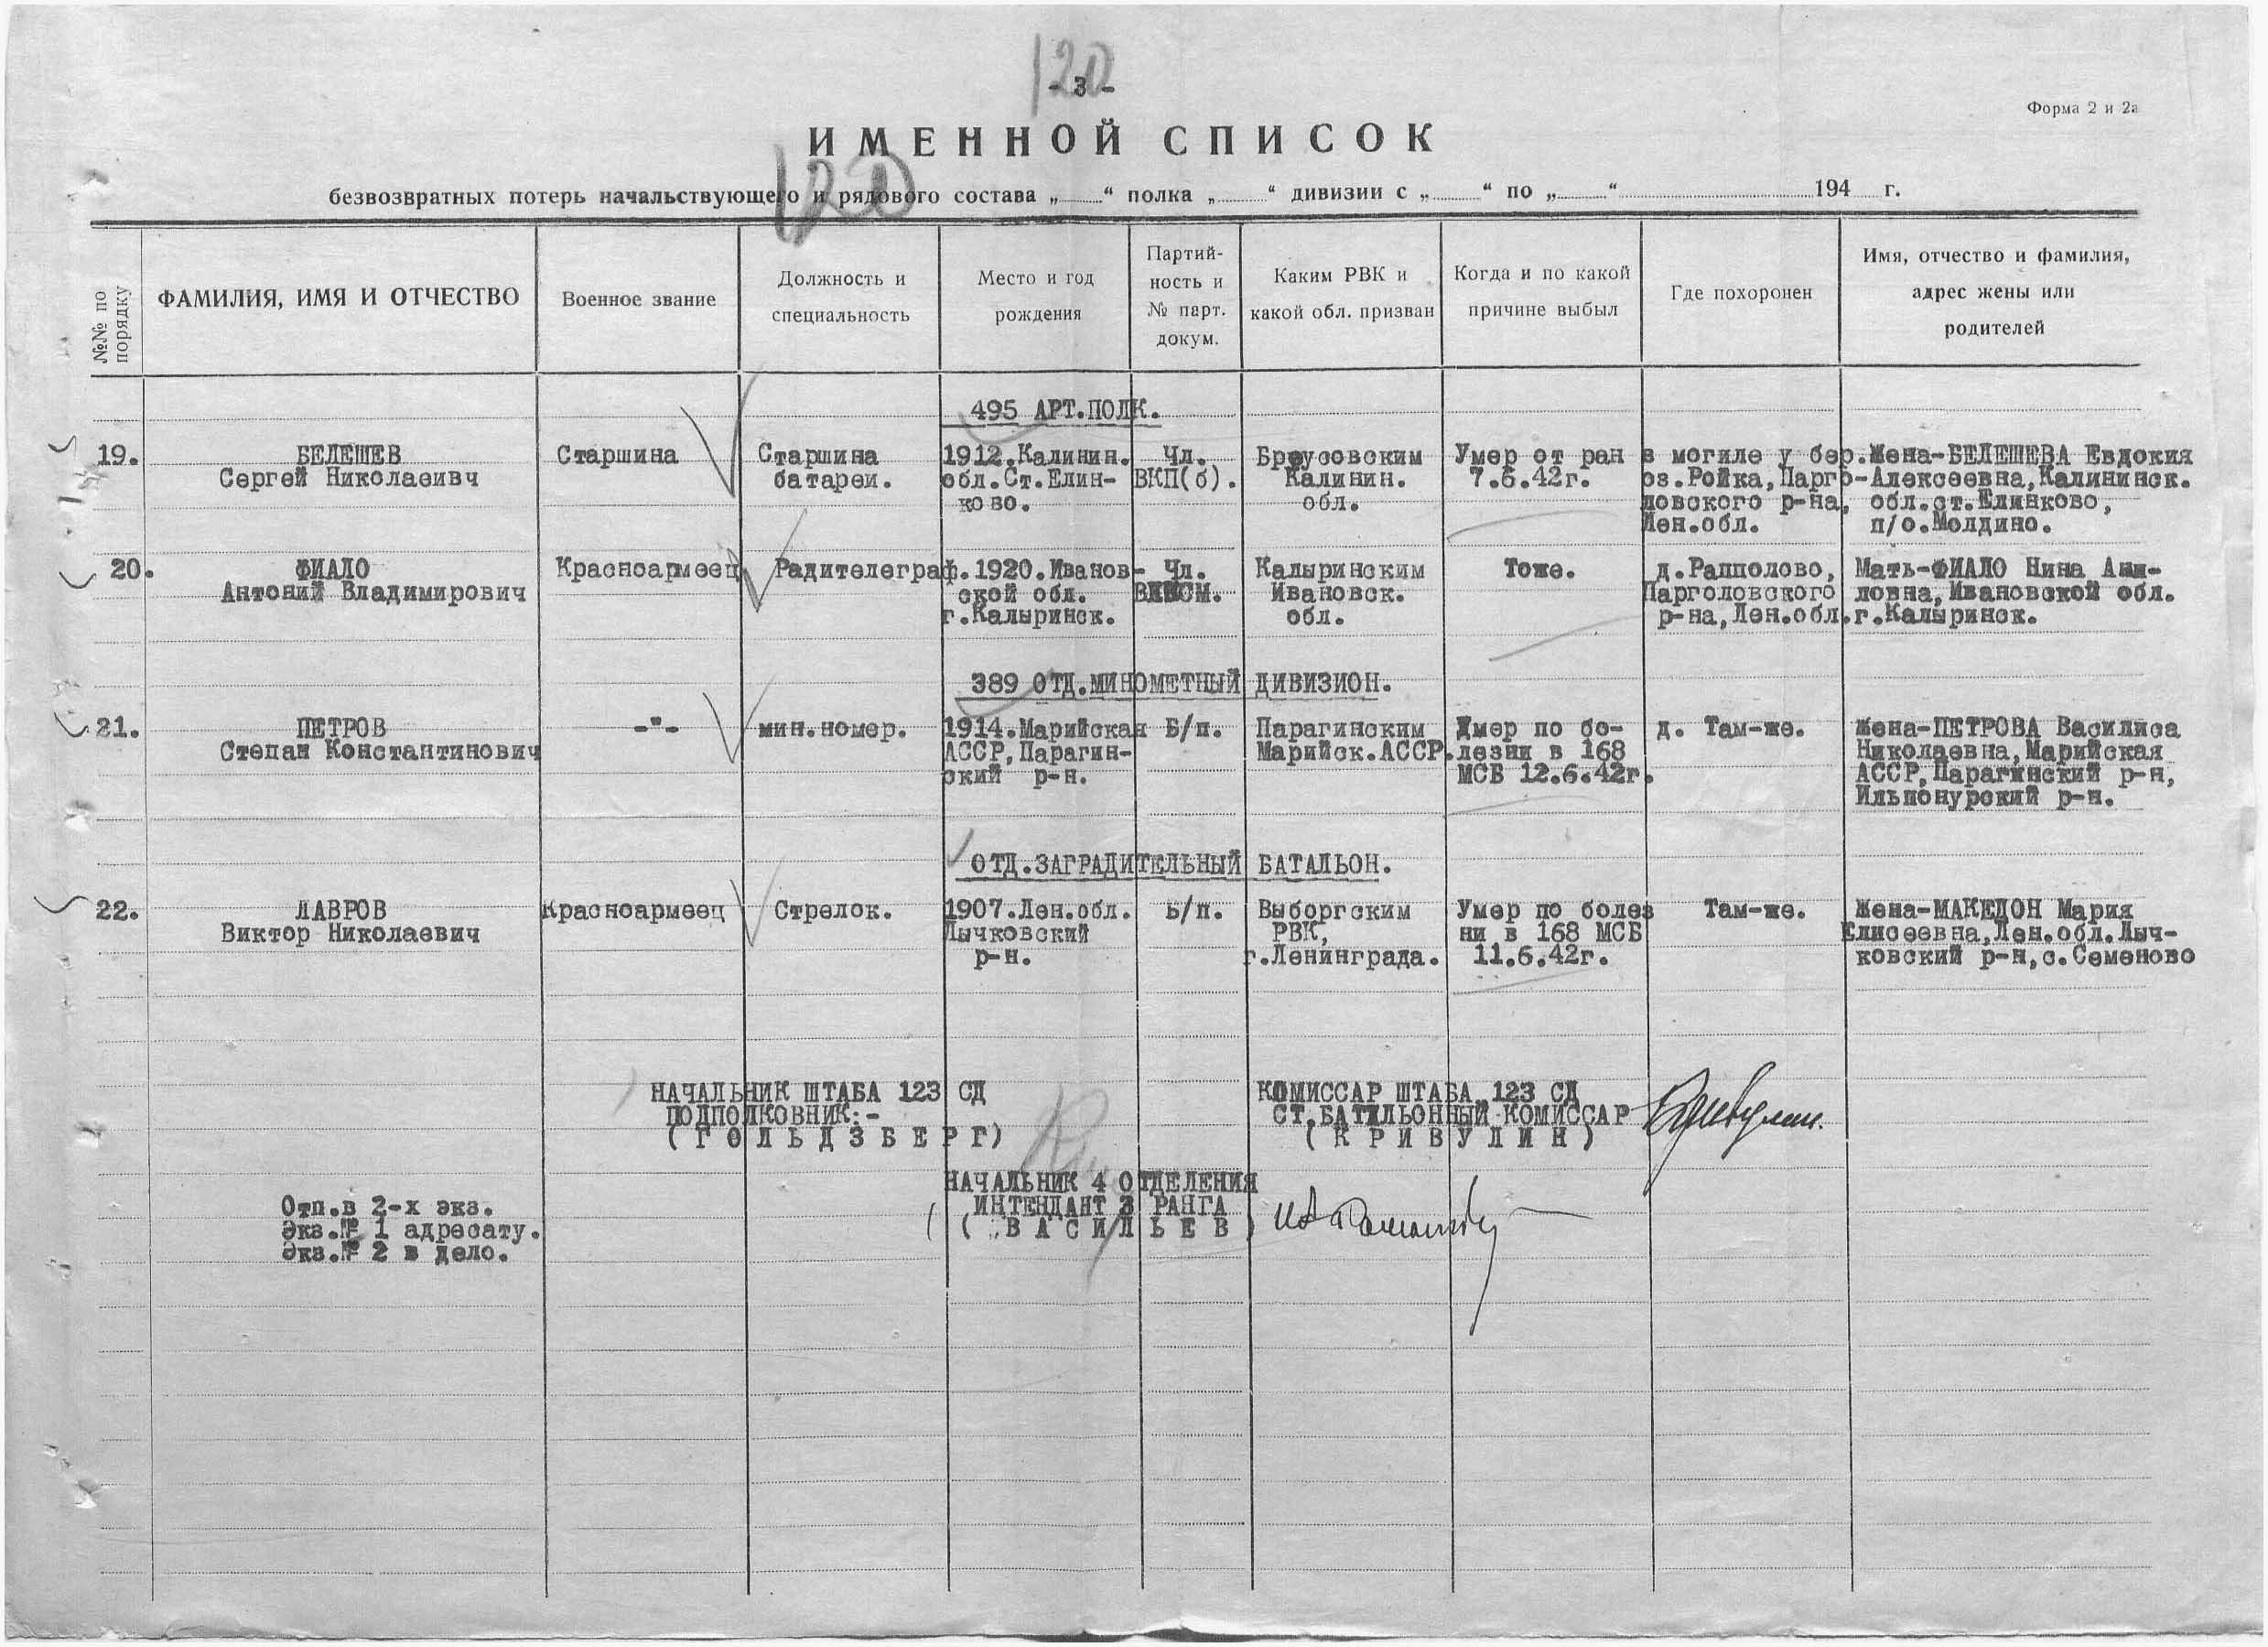 120
- 3 -
Форма 2 и 2а
ИМЕННОЙ СПИСОК
безвозвратных потерь начальствующего и рядового состава „ “ полка „ “ дивизии с „ “ по „ “ 194 г.
120
№№ по порядку
ФАМИЛИЯ, ИМЯ И ОТЧЕСТВО
Военное звание
Должность и
специальность
Место и год
рождения
Партий-
ность и
№ парт.
докум.
Каким РВК и
какой обл. призван
Когда и по какой
причине выбыл
Где похоронен
Имя, отчество и фамилия,
адрес жены или
родителей
495 АРТ.ПОЛК.
19.
БЕЛЕШЕВ
Сергей Николаеивч
Старшина
Старшина
батареи.
1912.Калинин.
обл.Ст.Елин-
ково.
Чл.
ВКП(б).
Бреусовским
Калинин.
обл.
Умер от ран
7.6.42г.
в могиле у бер.
оз.Ройка,Парго-
ловского р-на,
Лен.обл.
Жена-БЕЛЕШЕВА Евдокия
Алексеевна,Калининск.
обл.ст.Елинково,
п/о.Молдино.
20.
ФИАЛО
Антоний Владимирович
Красноармеец
Радителеграф.
1920.Иванов-
ской обл.
г.Калыринск.
Чл.
ВЛКСМ.
Калыринским
Ивановск.
обл.
Тоже.
д.Рапполово,
Парголовского
р-на,Лен.обл.
Мать-ФИАЛО Нина Ани-
ловна,Ивановской обл.
г.Калыринск.
389 ОТД.МИНОМЕТНЫЙ ДИВИЗИОН.
21.
ПЕТРОВ
Степан Константинович
-"-
мин.номер.
1914.Марийская
АССР,Парагин-
ский р-н.
Б/п.
Парагинским
Марийск.АССР.
Умер по бо-
лезни в 168
МСБ 12.6.42г.
д. Там-же.
Жена-ПЕТРОВА Василиса
Николаевна,Марийская
АССР,Парагинский р-н,
Ильпонурский р-н.
ОТД.ЗАГРАДИТЕЛЬНЫЙ БАТАЛЬОН.
22.
ЛАВРОВ
Виктор Николаевич
Красноармеец
Стрелок.
1907.Лен.обл.
Лычковский
р-н.
Б/п.
Выборгским
РВК,
г.Ленинграда.
Умер по болез
ни в 168 МСБ
11.6.42г.
Там-же.
Жена-МАКЕДОН Мария
Елисеевна,Лен.обл.Лыч-
ковский р-н,с.Семеново
НАЧАЛЬНИК ШТАБА 123 СД
ПОДПОЛКОВНИК:-
(ГОЛЬДЗБЕРГ)
КОМИССАР ШТАБА 123 СД
СТ.БАТАЛЬОННЫЙ КОМИССАР
(КРИВУЛИН)
Кривулин.
НАЧАЛЬНИК 4 ОТДЕЛЕНИЯ
ИНТЕНДАНТ 3 РАНГА
(ВАСИЛЬЕВ)
Отп.в 2-х экз.
Экз.№ 1 адресату.
Экз.№ 2 в дело.